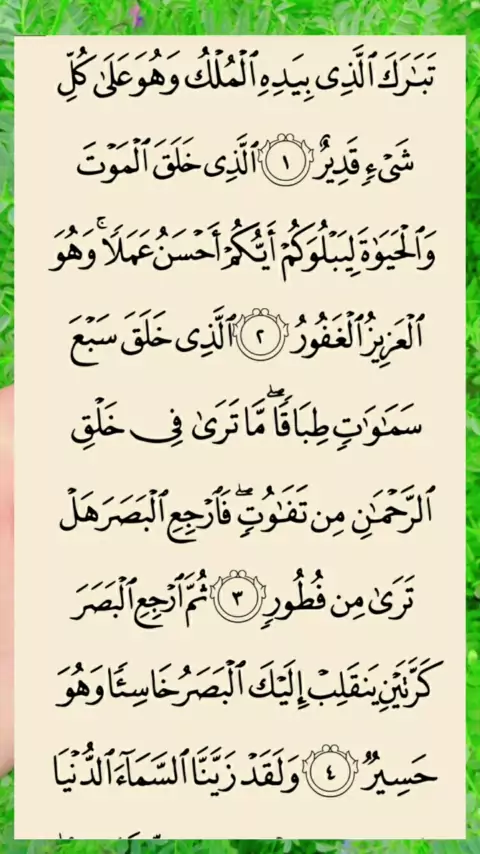 تَبَٰرَكَ ٱلَّذِى بِيَدِهِ ٱلْمُلْكُ وَهُوَ عَلَىٰ كُلِّ
شَىْءٍ قَدِيرٌ ١ ٱلَّذِى خَلَقَ ٱلْمَوْتَ
وَٱلْحَيَوٰةَ لِيَبْلُوَكُمْ أَيُّكُمْ أَحْسَنُ عَمَلًا ۚ وَهُوَ
ٱلْعَزِيزُ ٱلْغَفُورُ ٢ ٱلَّذِى خَلَقَ سَبْعَ
سَمَٰوَٰتٍ طِبَاقًا ۖ مَّا تَرَىٰ فِى خَلْقِ
ٱلرَّحْمَٰنِ مِن تَفَٰوُتٍ ۖ فَٱرْجِعِ ٱلْبَصَرَ هَلْ
تَرَىٰ مِن فُطُورٍ ٣ ثُمَّ ٱرْجِعِ ٱلْبَصَرَ
كَرَّتَيْنِ يَنقَلِبْ إِلَيْكَ ٱلْبَصَرُ خَاسِئًا وَهُوَ
حَسِيرٌ ٤ وَلَقَدْ زَيَّنَّا ٱلسَّمَآءَ ٱلدُّنْيَا